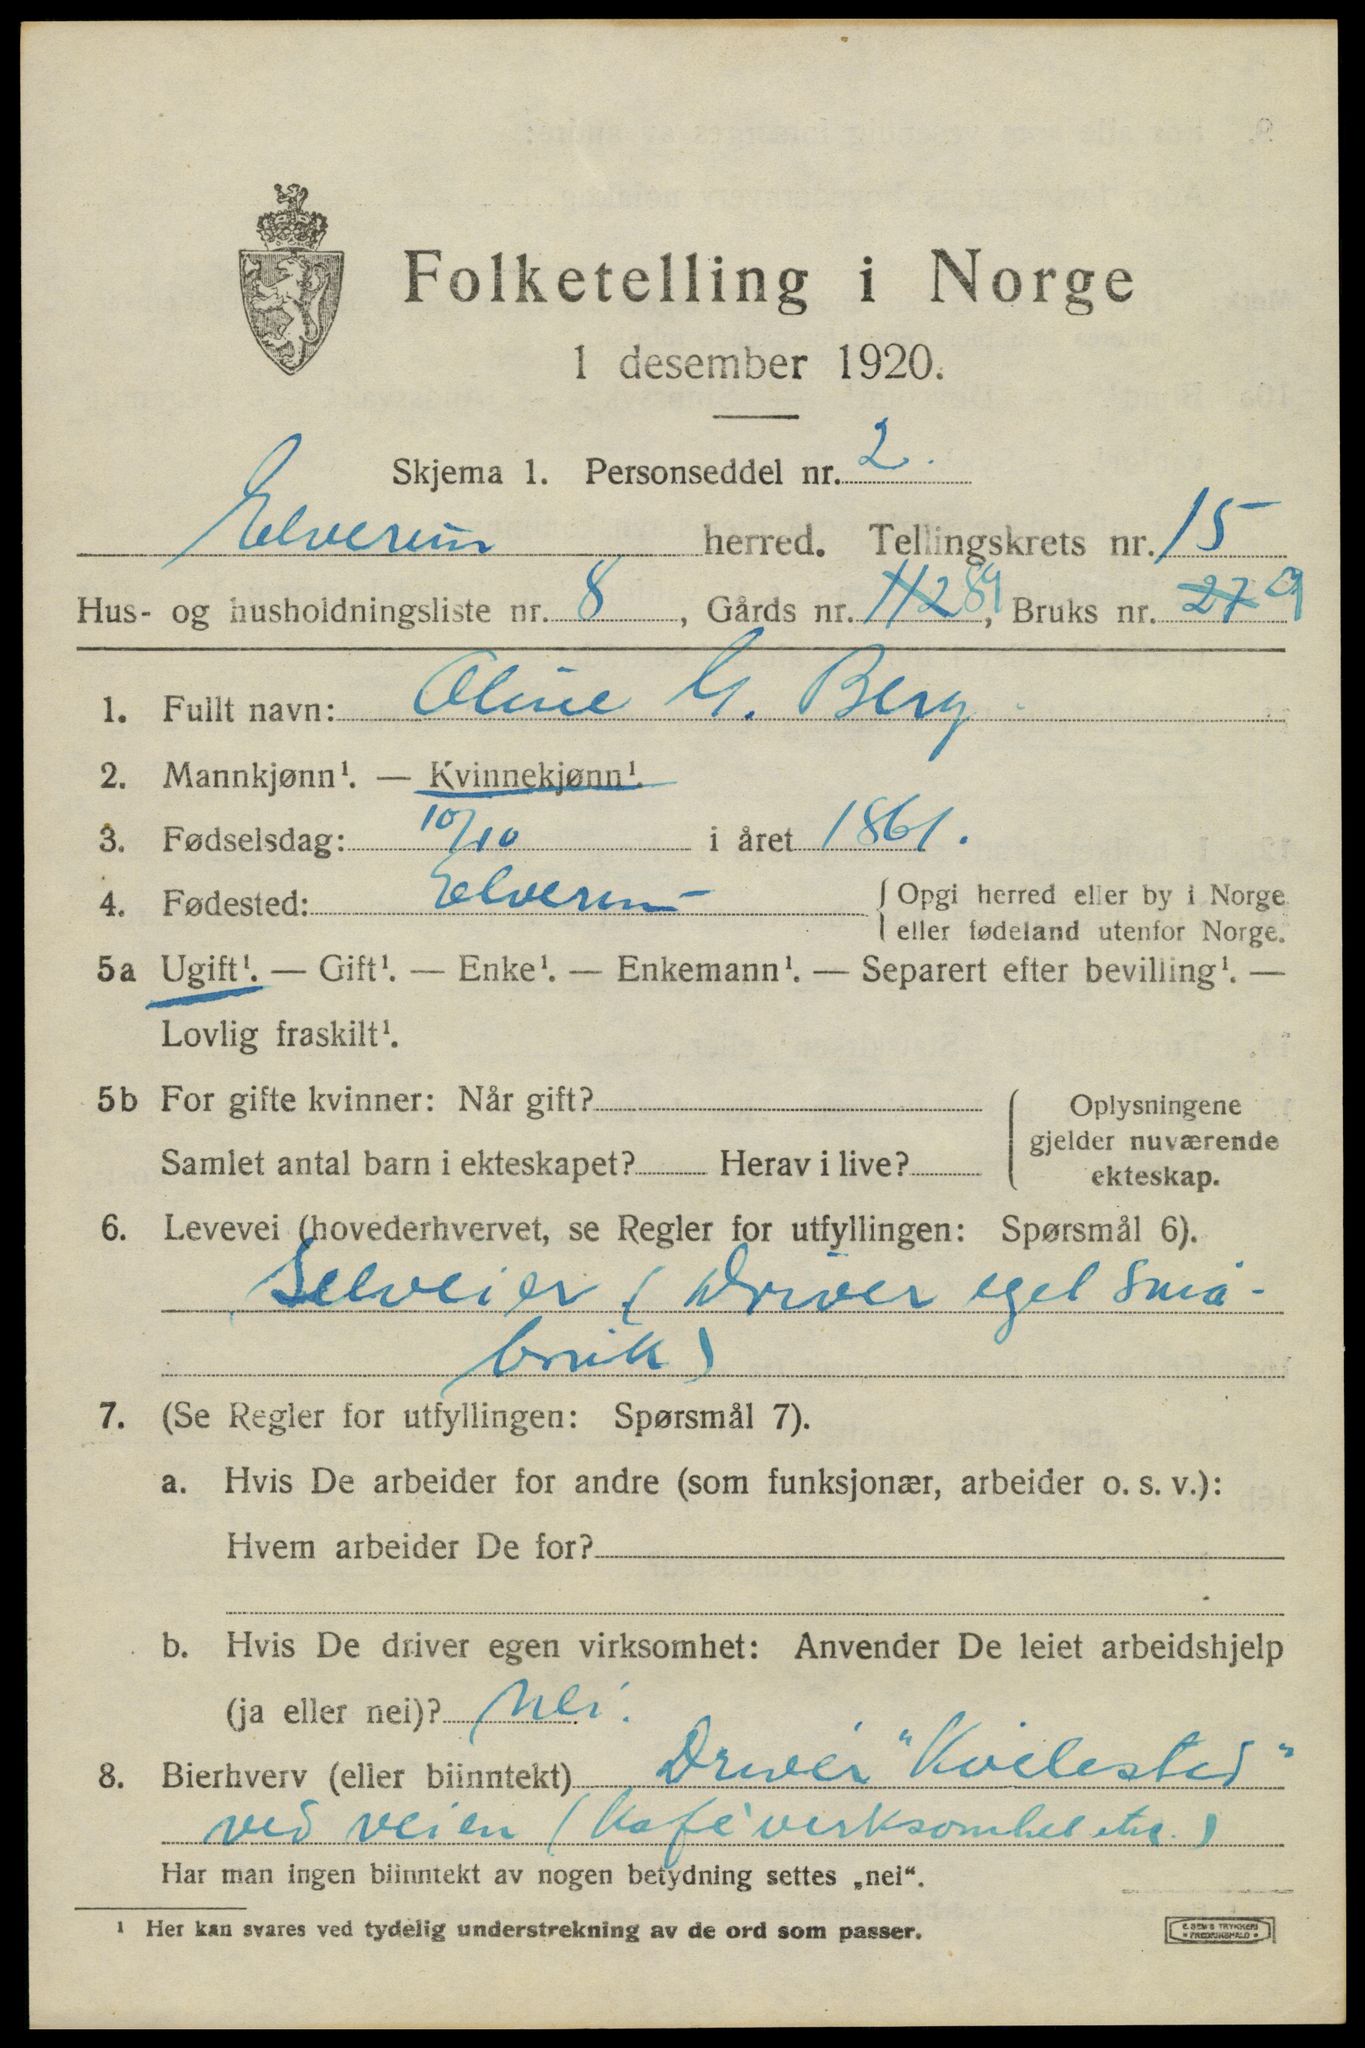 Folketelling i Norge
1 desember 1920.
Skjema 1. Personseddel nr. 2.
Elverum herred. Tellingskrets nr. 15
Hus- og husholdningsliste nr. 8, Gårds nr. 112 89, Bruks nr. 27 9
1. Fullt navn: Oline G. Berg
2. Mannkjønn¹. — Kvinnekjønn¹.
3. Fødselsdag: 10/10 i året 1861.
4. Fødested: Elverum { Opgi herred eller by i Norge
eller fødeland utenfor Norge.
5a Ugift¹. — Gift¹. — Enke¹. — Enkemann¹. — Separert efter bevilling¹. —
Lovlig fraskilt¹.
5b For gifte kvinner: Når gift? Oplysningene
gjelder nuværende
Samlet antal barn i ekteskapet? Herav i live?
ekteskap.
6. Levevei (hovederhvervet, se Regler for utfyllingen: Spørsmål 6).
Selveier (Driver eget små-
bruk)
7. (Se Regler for utfyllingen: Spørsmål 7).
a. Hvis De arbeider for andre (som funksjonær, arbeider o. s. v.):
Hvem arbeider De for?
b. Hvis De driver egen virksomhet: Anvender De leiet arbeidshjelp
(ja eller nei)? Nei.
8. Bierhverv (eller biinntekt) Driver "Kvilested"
ved veien (Kafévirksomhet etc.)
Har man ingen biinntekt av nogen betydning settes „nei“.
¹ Her kan svares ved tydelig understrekning av de ord som passer.
E. SEM'S TRYKKERI
• FREDRIKSHALD •